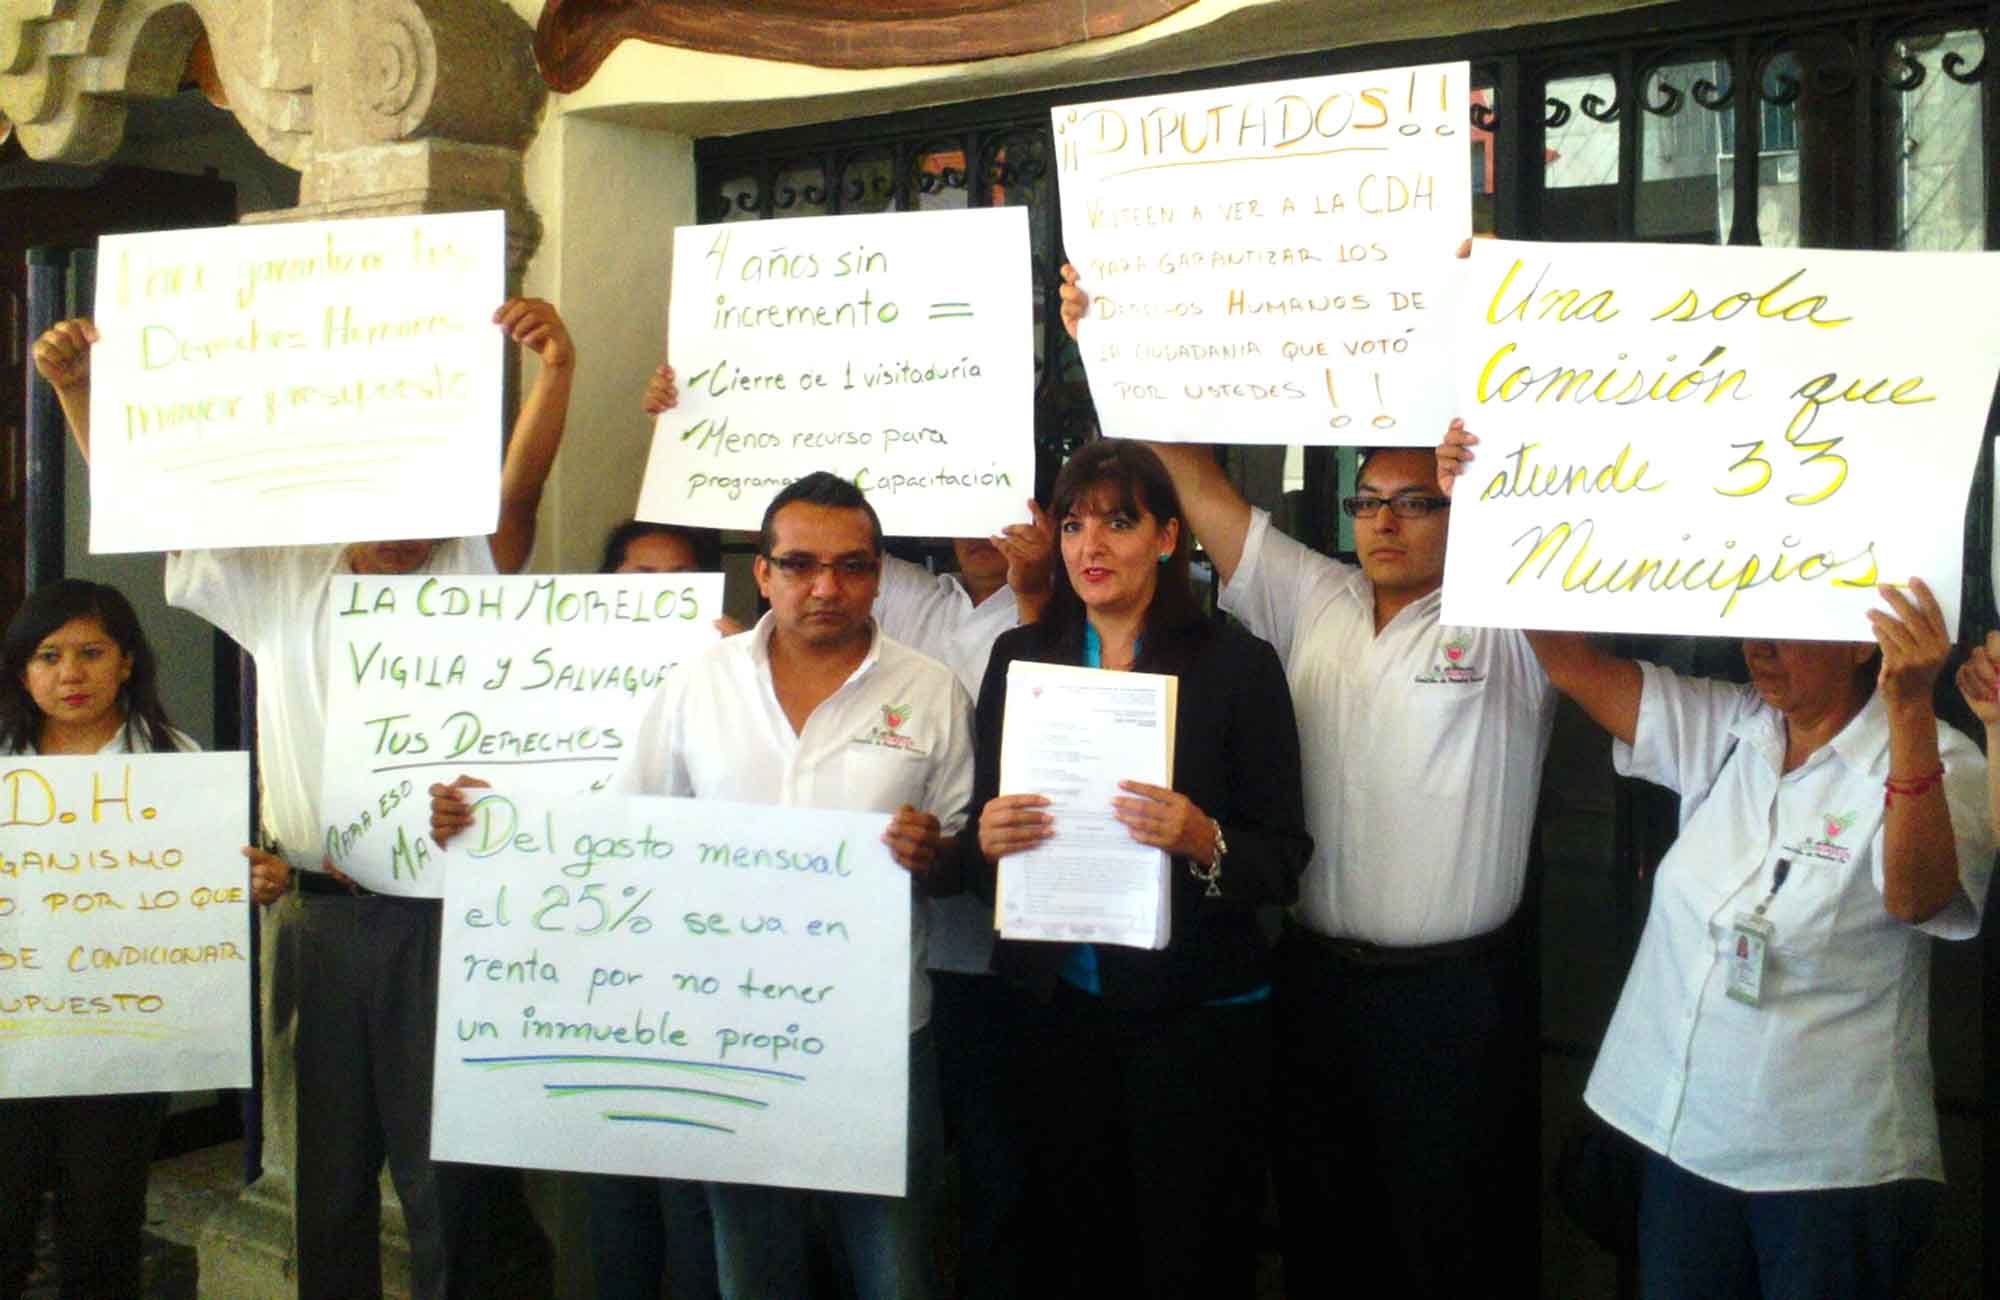 Para garantizar los
Derechos Humanos
mayor presupuesto
4 años sin
incremento =
✓Cierre de 1 visitaduría
✓Menos recurso para
programas Capacitación
¡¡DIPUTADOS!!
VOLTEEN A VER A LA CDH
PARA GARANTIZAR LOS
DERECHOS HUMANOS DE
LA CIUDADANIA QUE VOTÓ
POR USTEDES !!
Una sola
Comisión que
atiende 33
Municipios
LA CDH MORELOS
VIGILA Y SALVAGUAR
TUS DERECHOS
PARA ESO
MA
D.H.
GANISMO
O. POR LO QUE
DE CONDICIONAR
UPUESTO
Del gasto mensual
el 25% se va en
renta por no tener
un inmueble propio